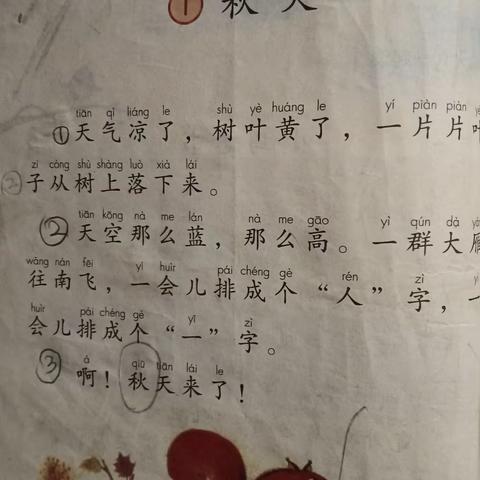 1 秋天
tiān qì liáng le shù yè huáng le yí piàn piàn
①天气凉了，树叶黄了，一片片叶
zi cóng shù shàng luò xià lái
②子从树上落下来。
tiān kōng nà me lán nà me gāo yì qún dà
②天空那么蓝，那么高。一群大雁
wǎng nán fēi yí huìr pái chéng gè rén zì
往南飞，一会儿排成个“人”字，一
huìr pái chéng gè yī zì
会儿排成个“一”字。
á qiū tiān lái le
③啊！秋天来了！